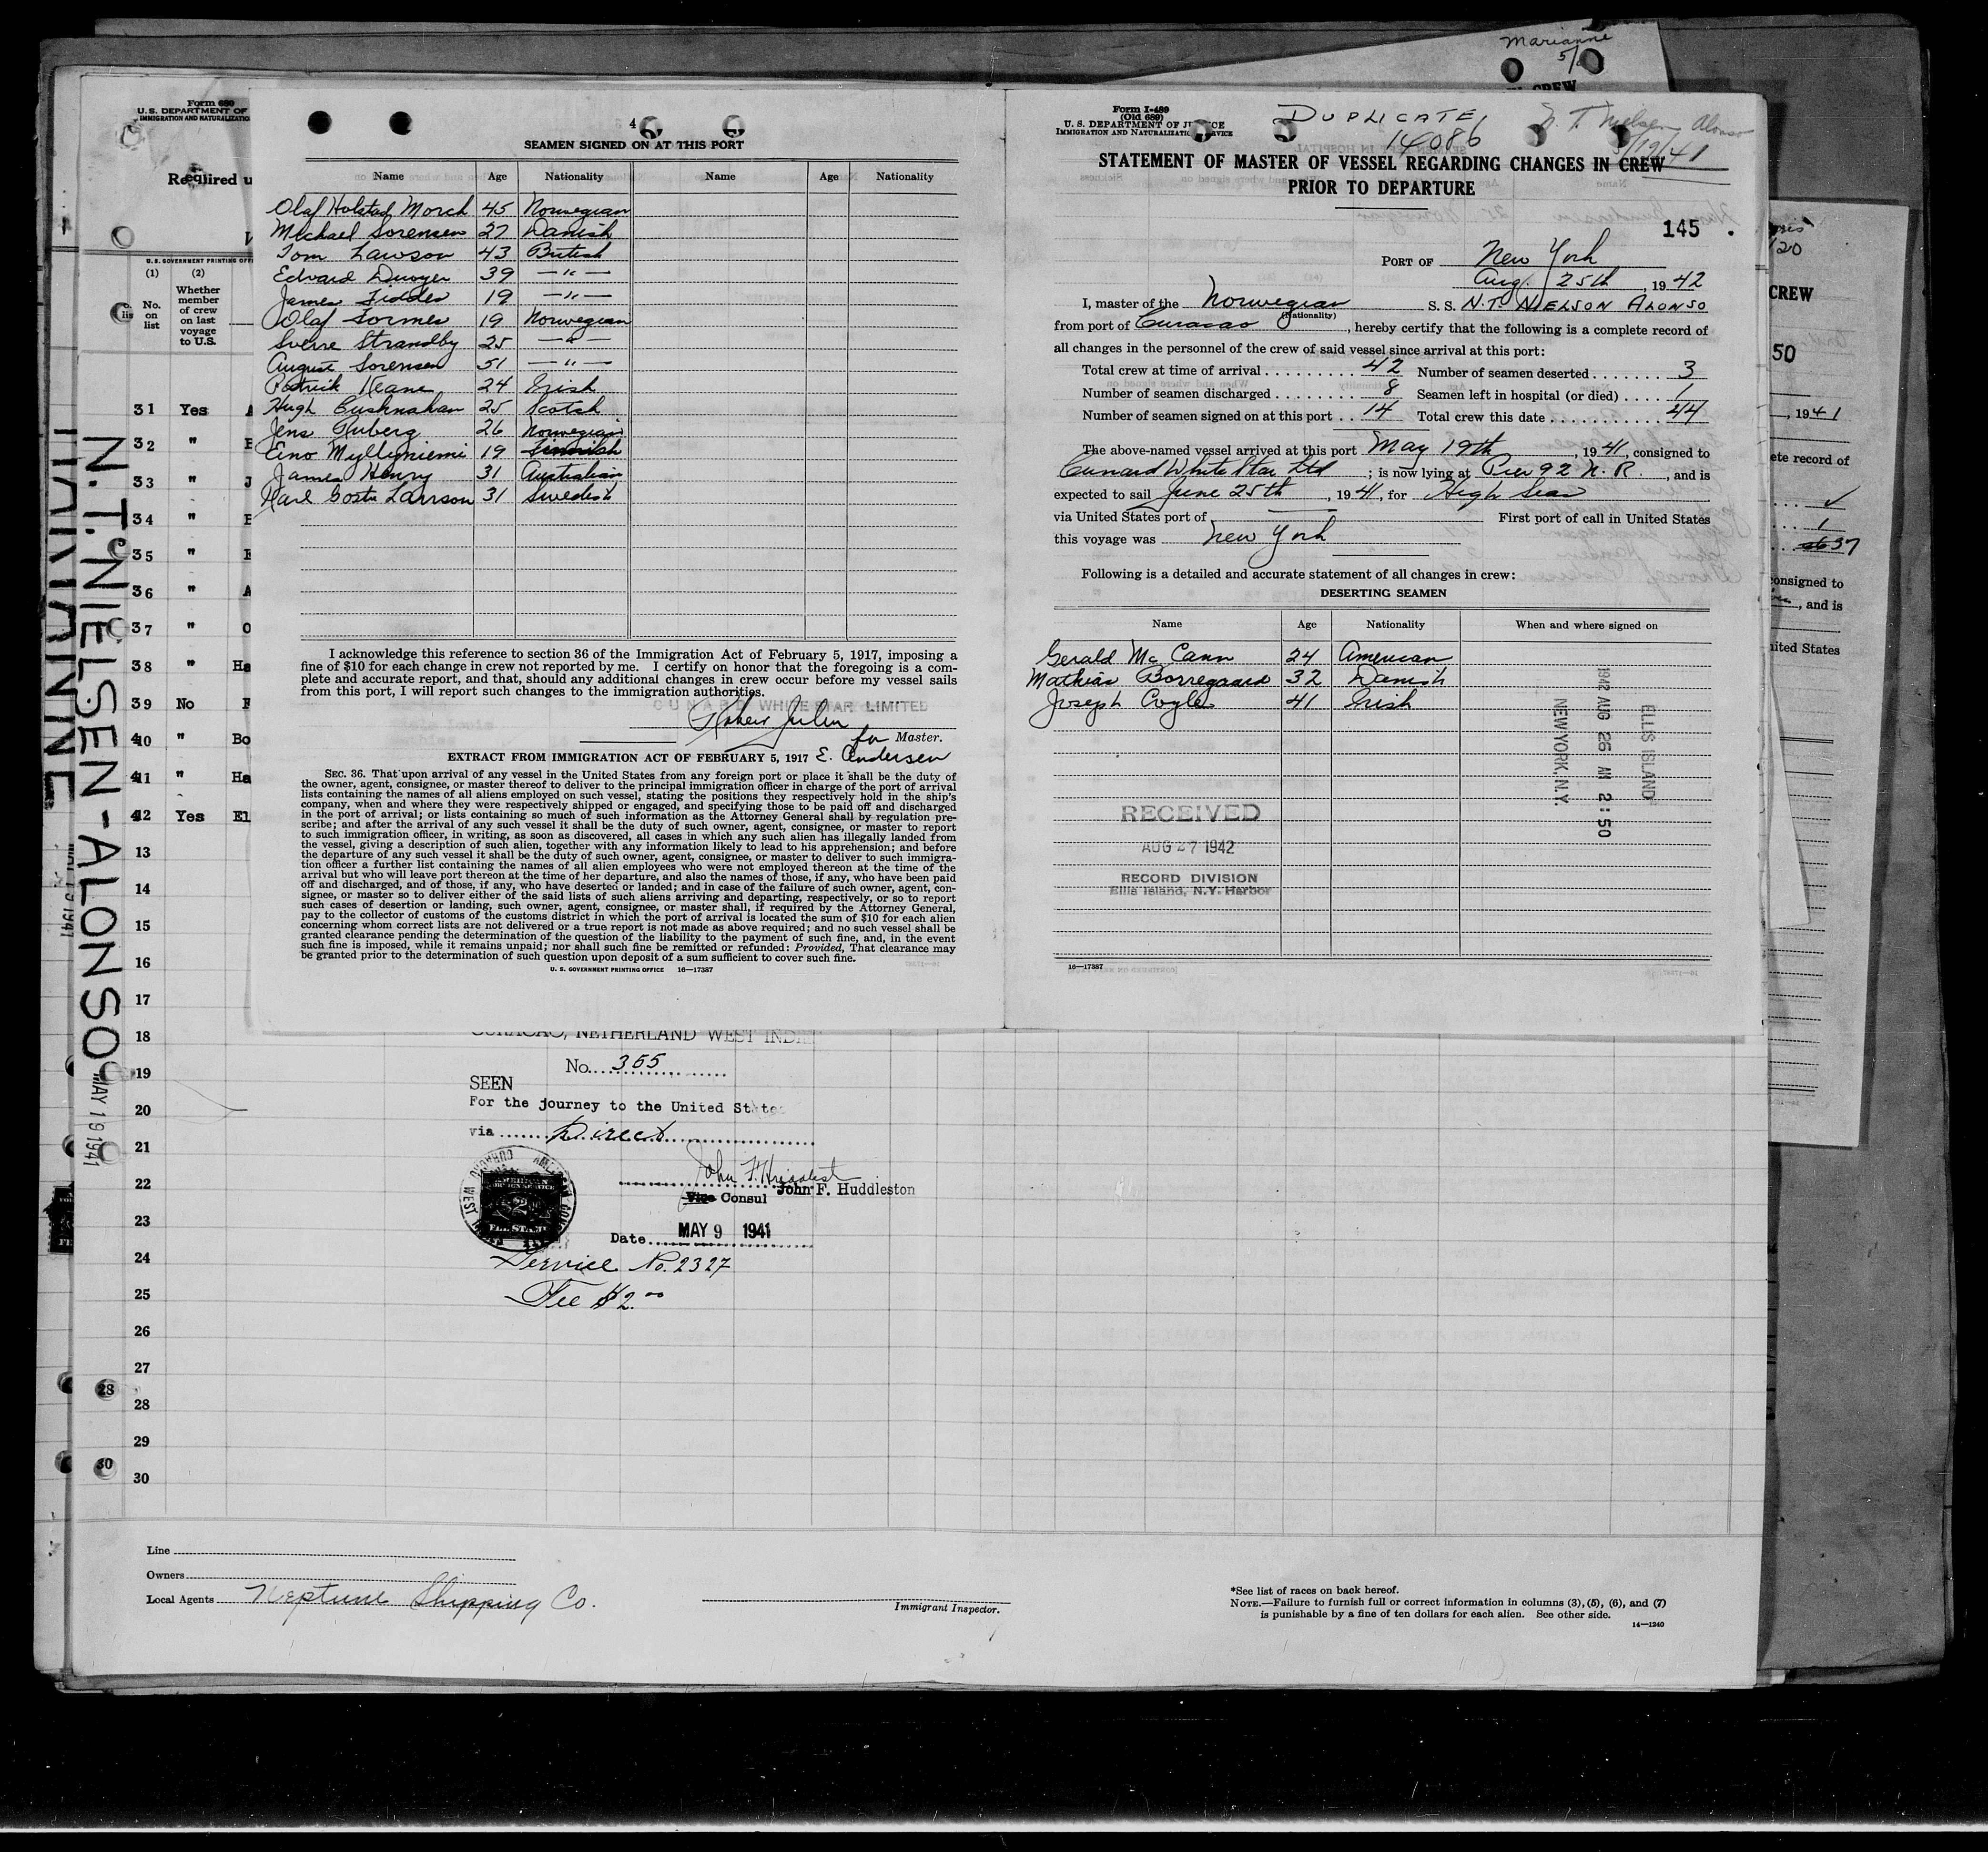 4
SEAMEN SIGNED ON AT THIS PORT
Name Age Nationality Name Age Nationality
Olaf Holstad Morch 45 Norwegian
Michael Sorensen 27 Danish
Tom Lawson 43 British
Edvard Dwoyer 39 —"—
James Fiddes 19 —"—
Olaf Sormes 19 Norwegian
Sverre Strandby 25 —"—
August Sorensen 51 —"—
Patrick Keane 24 Irish
Hugh Cushnahan 25 Scotch
Jens 26 Norwegian
Eino Myllyniemi 19 Finnish
James Henry 31 Australian
Karl Gosta Larrson 31 Swedish
I acknowledge this reference to section 36 of the Immigration Act of February 5, 1917, imposing a
fine of $10 for each change in crew not reported by me. I certify on honor that the foregoing is a com-
plete and accurate report, and that, should any additional changes in crew occur before my vessel sails
from this port, I will report such changes to the immigration authorities.
CUNARD WHITE STAR LIMITED
for Master.
E. Andersen
EXTRACT FROM IMMIGRATION ACT OF FEBRUARY 5, 1917
SEC. 36. That upon arrival of any vessel in the United States from any foreign port or place it shall be the duty of
the owner, agent, consignee, or master thereof to deliver to the principal immigration officer in charge of the port of arrival
lists containing the names of all aliens employed on such vessel, stating the positions they respectively hold in the ship's
company, when and where they were respectively shipped or engaged, and specifying those to be paid off and discharged
in the port of arrival; or lists containing so much of such information as the Attorney General shall by regulation pre-
scribe; and after the arrival of any such vessel it shall be the duty of such owner, agent, consignee, or master to report
to such immigration officer, in writing, as soon as discovered, all cases in which any such alien has illegally landed from
the vessel, giving a description of such alien, together with any information likely to lead to his apprehension; and before
the departure of any such vessel it shall be the duty of such owner, agent, consignee, or master to deliver to such immigra-
tion officer a further list containing the names of all alien employees who were not employed thereon at the time of the
arrival but who will leave port thereon at the time of her departure, and also the names of those, if any, who have been paid
off and discharged, and of those, if any, who have deserted or landed; and in case of the failure of such owner, agent, con-
signee, or master so to deliver either of the said lists of such aliens arriving and departing, respectively, or so to report
such cases of desertion or landing, such owner, agent, consignee, or master shall, if required by the Attorney General,
pay to the collector of customs of the customs district in which the port of arrival is located the sum of $10 for each alien
concerning whom correct lists are not delivered or a true report is not made as above required; and no such vessel shall be
granted clearance pending the determination of the question of the liability to the payment of such fine, and, in the event
such fine is imposed, while it remains unpaid; nor shall such fine be remitted or refunded: Provided, That clearance may
be granted prior to the determination of such question upon deposit of a sum sufficient to cover such fine.
U. S. GOVERNMENT PRINTING OFFICE 16—17387
Form I-489
(Old 689)
U. S. DEPARTMENT OF JUSTICE
IMMIGRATION AND NATURALIZATION SERVICE
DUPLICATE
14086
N. T. Nielsen Alonso
5/19/41
STATEMENT OF MASTER OF VESSEL REGARDING CHANGES IN CREW
PRIOR TO DEPARTURE
145
PORT OF New York
Aug. 25th, 1942
I, master of the Norwegian S. S. N.T. NIELSON ALONSO
(Nationality)
from port of Curacao, hereby certify that the following is a complete record of
all changes in the personnel of the crew of said vessel since arrival at this port:
Total crew at time of arrival 42 Number of seamen deserted 3
Number of seamen discharged 8 Seamen left in hospital (or died) 1
Number of seamen signed on at this port 14 Total crew this date 44
The above-named vessel arrived at this port May 19th, 1941, consigned to
Cunard White Star Ltd; is now lying at Pier 92 N. R., and is
expected to sail June 25th, 1941, for High Seas
via United States port of —— First port of call in United States
this voyage was New York
Following is a detailed and accurate statement of all changes in crew:
DESERTING SEAMEN
Name Age Nationality When and where signed on
Gerald Mc Cann 24 American
Mathias Borregaard 32 Danish
Joseph Coyle 41 Irish
ELLIS ISLAND
1942 AUG 26 AM 2:50
NEW YORK, N.Y.
RECEIVED
AUG 27 1942
RECORD DIVISION
Ellis Island, N.Y. Harbor
16—17387
Form 689
U.S. DEPARTMENT OF
IMMIGRATION AND NATURALIZATIO
Required u
U.S. GOVERNMENT PRINTING OFF
(1) (2)
No. on list
Whether member of crew on last voyage to U.S.
31 Yes
32 "
33 " J
34 "
35 "
36 " A
37 " O
38 " Ha
39 No
40 " Bo
41 " Ha
42 Yes El
13
14
15
16
17
18
19
20
21
22
23
24
25
26
27
28
28
29
30
30
N.T. NIELSEN-ALONSO
MAY 19 1941
MARIANNE
CURACAO, NETHERLAND WEST INDI
No. 355
SEEN
For the journey to the United State
via Direct
John F. Huddleston
Vice Consul John F. Huddleston
Date MAY 9 1941
Service No. 2327
Fee $2.00
Line
Owners
Local Agents Neptune Shipping Co.
Immigrant Inspector.
*See list of races on back hereof.
NOTE.—Failure to furnish full or correct information in columns (3), (5), (6), and (7)
is punishable by a fine of ten dollars for each alien. See other side.
14—1240
Marianne
5/
CREW
20
CREW
50
, 1941
ete record of
1
37
consigned to
, and is
nited States